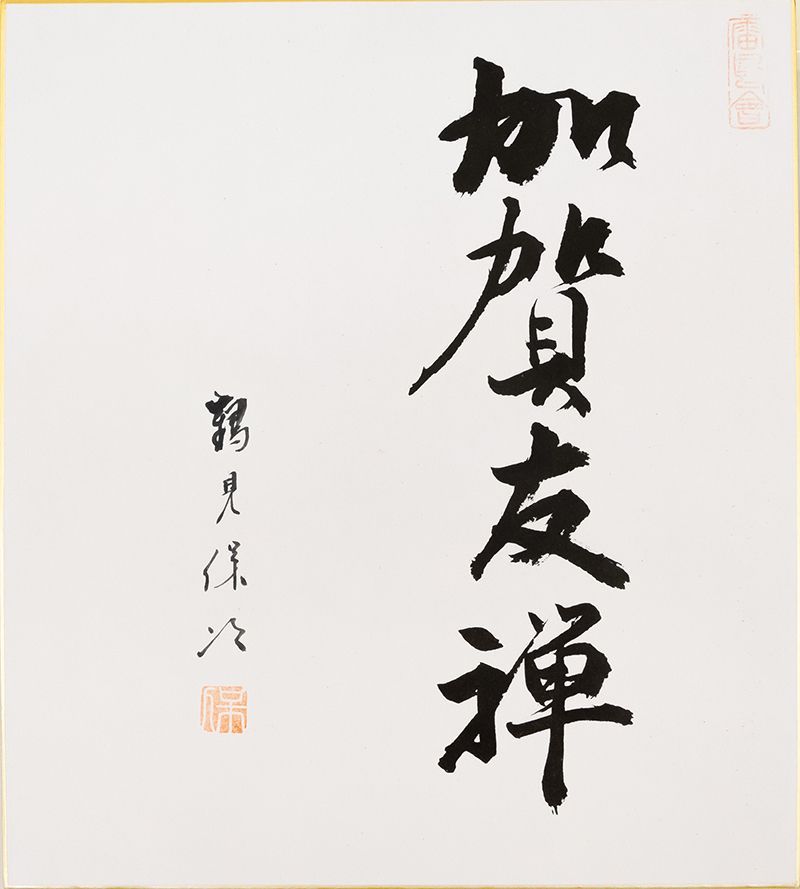 加賀友禅
鶴見保次
保